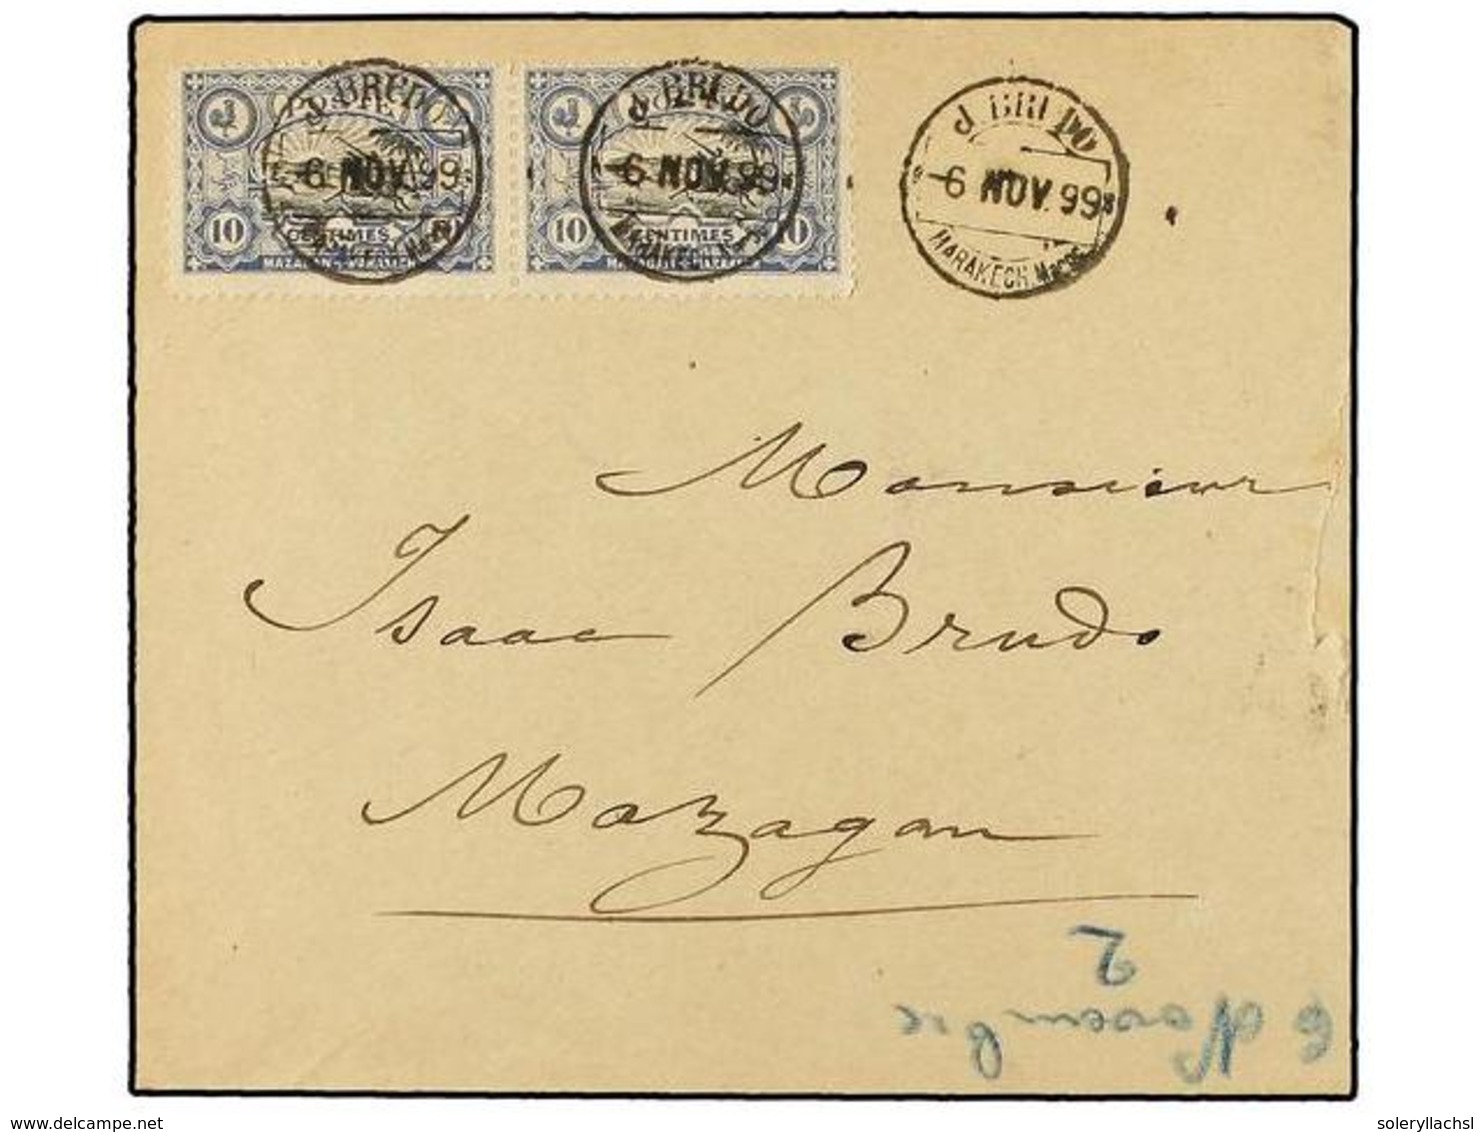 J. BRUDO
6 NOV. 99
MARAKECH. Maroc
J. BRUDO
6 NOV. 99
MARAKECH. Maroc
J. BRUDO
6 NOV. 99
MARAKECH. Maroc
10 CENTIMES 10
MAZAGAN - MARAKECH
10 CENTIMES 10
MAZAGAN - MARAKECH
Monsieur
Isaac Brudo
Mazagan
2
6 Novembre
www.delcampe.net
soleryllachsl